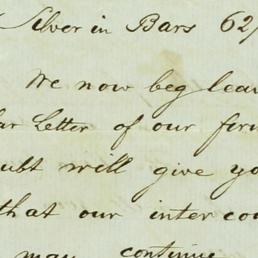 Silver in Bars 62/
We now beg leav
lar Letter of our firm
ubt will give yo
that our inter cou
may continue